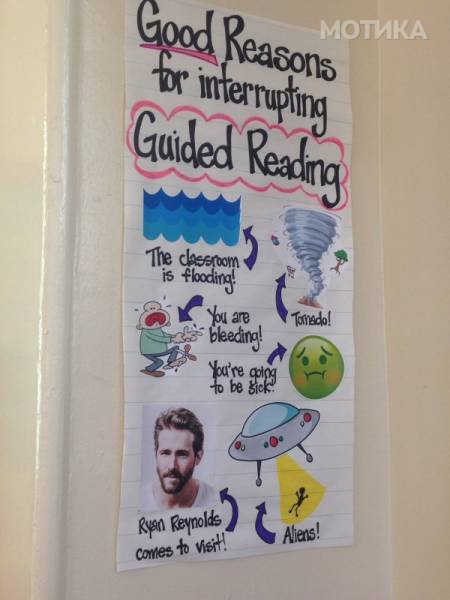 МОТИКА
Good Reasons
for interrupting
Guided Reading
The classroom
is flooding!
Tornado!
You are
bleeding!
You're going
to be sick!
Ryan Reynolds
comes to visit!
Aliens!